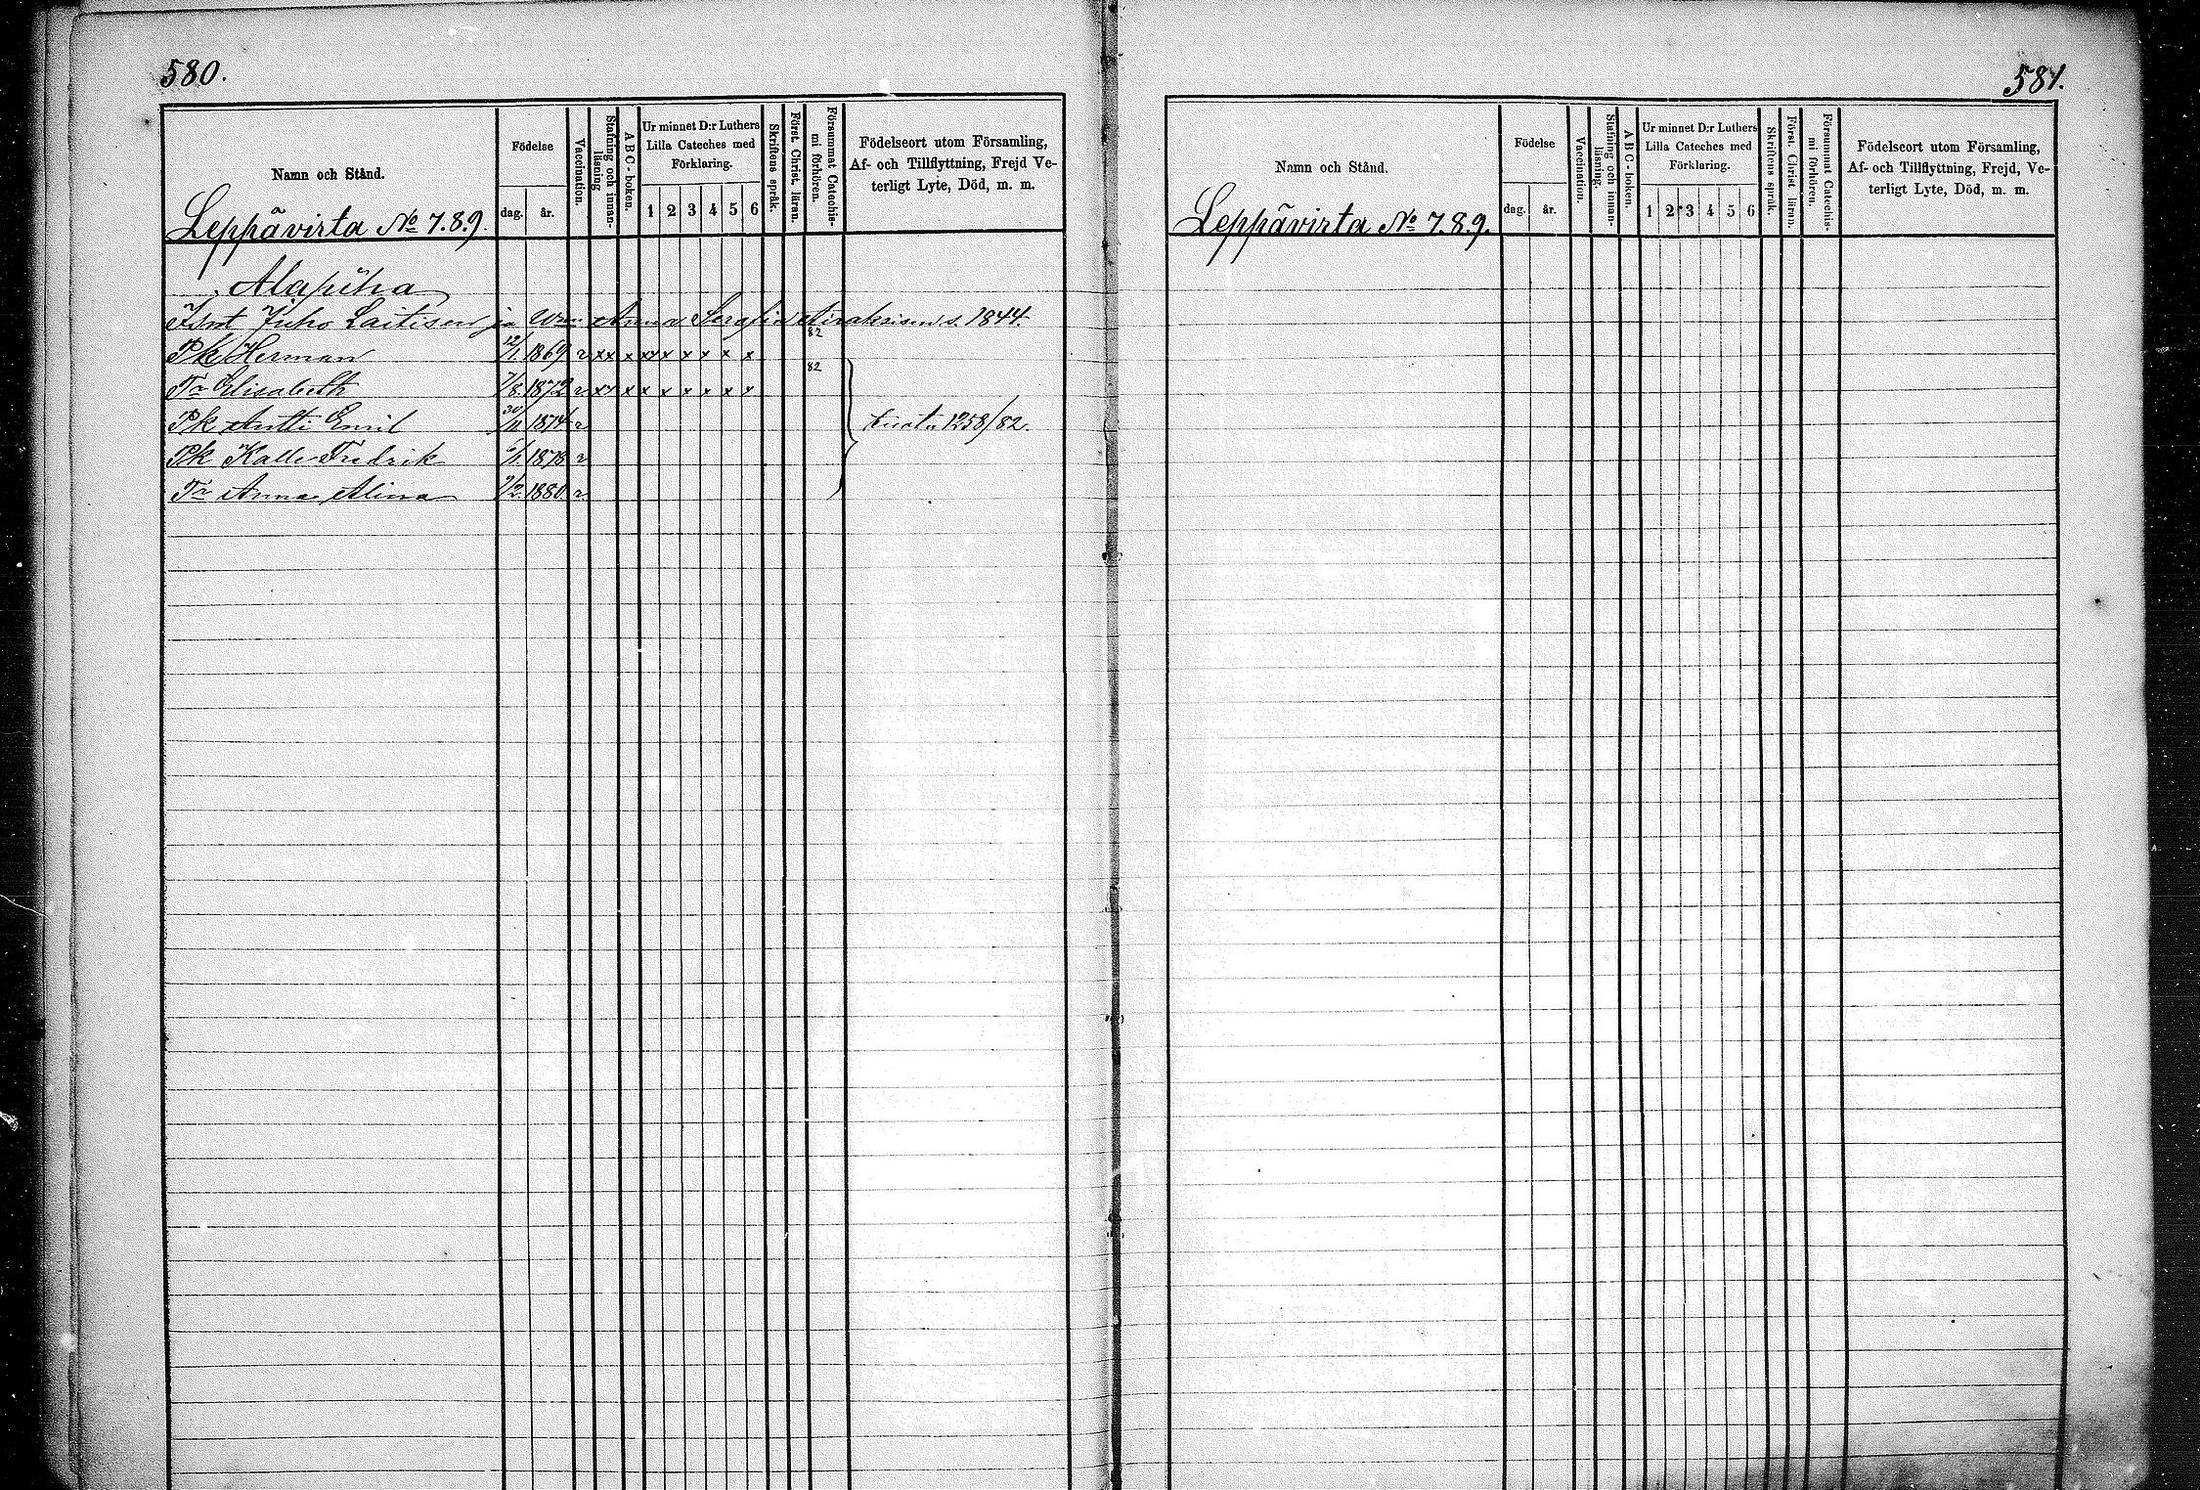 580.
Namn och Stånd.
Födelse
dag.
år.
Vaccination.
Stafning och innan-
läsning
ABC-boken.
Ur minnet D:r Luthers
Lilla Cateches med
Förklaring.
1 2 3 4 5 6
Skriftens språk.
Först. Christ. läran.
Försummat Catechis-
mi förhören.
Födelseort utom Församling,
Af- och Tillflyttning, Frejd Ve-
terligt Lyte, Död, m. m.
Leppävirta No 7.8.9.
Alapiha
Juho Laitisen ja Anna Serafia s. 1844.
82
Pk Herman 12/1 1869 v xx x xx x x x x x
82
Tr Elisabeth 7/8 1872 v xx x x x x x x x
Pk Antti Emil 30/11 1874 v 1258/82.
Pk Kalle Fredrik 6/1 1878 v
Tr Anna Alina 9/2 1880 v
581.
Namn och Stånd.
Födelse
dag.
år.
Vaccination.
Stafning och innan-
läsning.
ABC-boken.
Ur minnet D:r Luthers
Lilla Cateches med
Förklaring.
1 2 3 4 5 6
Skriftens språk.
Först. Christ läran.
Försummat Catechis-
mi förhören.
Födelseort utom Församling,
Af- och Tillflyttning, Frejd, Ve-
terligt Lyte, Död, m. m.
Leppävirta No 7.8.9.